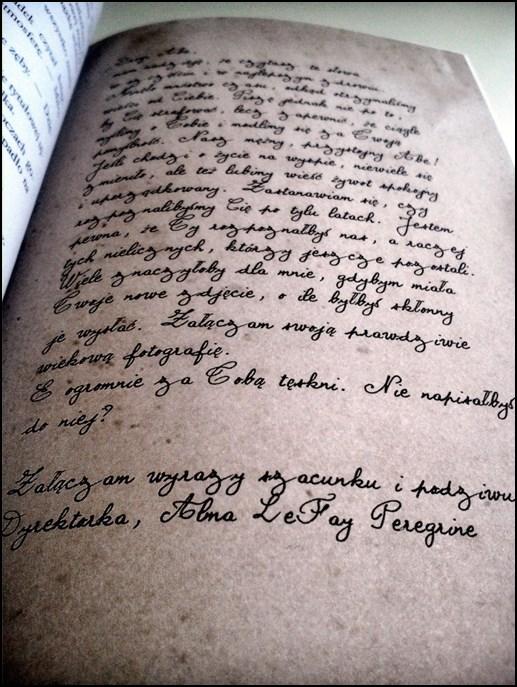 Drogi Abe,
mam nadzieję, że czytasz te słowa
w
Minęło mnóstwo czasu, odkąd otrzymaliśmy
wieści od Ciebie. Piszę jednak nie po to,
by Cię strofować, lecz by zapewnić, że ciągle
myślimy o Tobie i modlimy się za Twoją
pomyślność. Nasz mężny, przystojny Abe!
Jeśli chodzi o życie na wyspie, niewiele się
zmieniło, ale też lubimy wieść żywot spokojny
i uporządkowany. Zastanawiam się, czy
rozpoznalibyśmy Cię po tylu latach. Jestem
pewna, że Ty rozpoznałbyś nas, a raczej
tych nielicznych, którzy jeszcze pozostali.
Wiele znaczyłoby dla mnie, gdybym miała
Twoje nowe zdjęcie, o ile byłbyś skłonny
je wysłać. Załączam swoją prawdziwie
wiekową fotografię.
E ogromnie za Tobą tęskni. Nie napisałbyś
do niej?
Załączam wyrazy szacunku i podziwu
Dyrektorka, Alma LeFay Peregrine